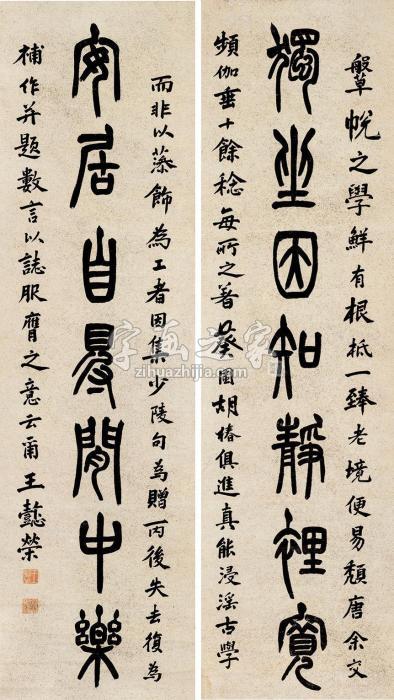 鞶帨之學鮮有根柢一臻老境便易頹唐余交
獨坐因知靜裡寬
頻伽垂十餘稔每所之著癸園胡椿俱進真能浸淫古學
而非以藻飾為工者因集少陵句為贈丙後失去復為
安居自㝵閒中樂
補作并題數言以誌服膺之意云爾王懿榮
字画之家
zihuazhijia.com